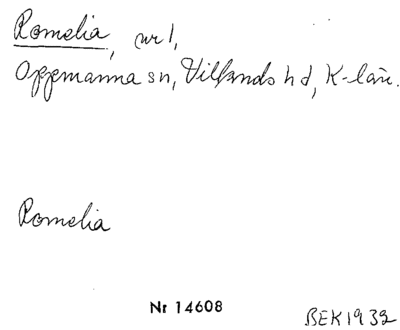 Romelia, nr 1,
Oppmanna sn, Villands hd, K-län.
Romelia
Nr 14608
BEK 1932